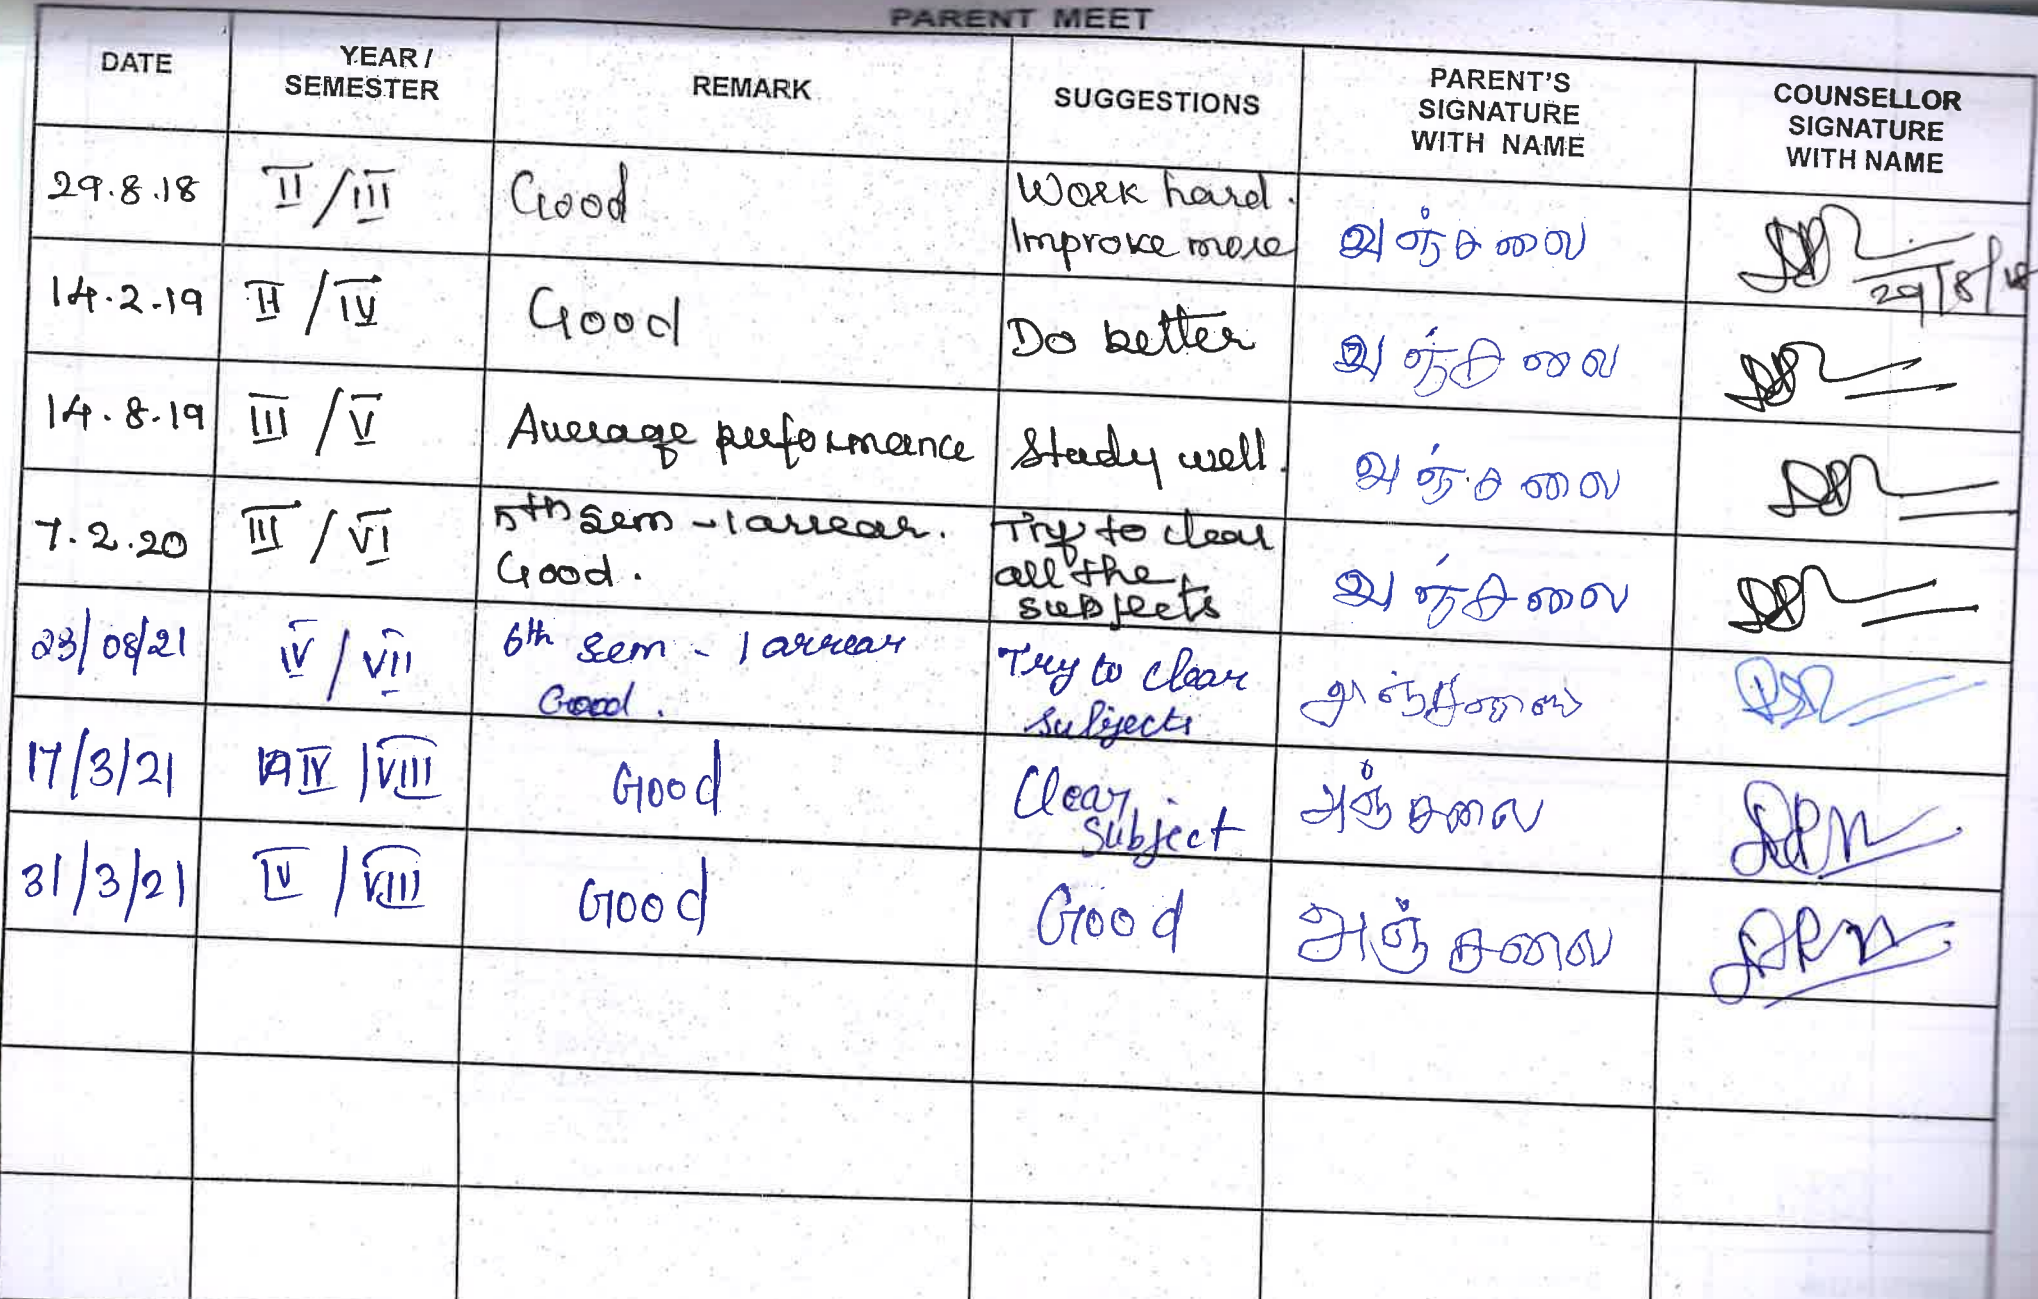 PARENT MEET
DATE
YEAR / SEMESTER
REMARK
SUGGESTIONS
PARENT'S SIGNATURE WITH NAME
COUNSELLOR SIGNATURE WITH NAME
29.8.18 II / III Good Work hard. அஞ்சலை
Improve more 29/8/18
14.2.19 II / IV Good Do better அஞ்சலை
14.8.19 III / V Average performance Study well. அஞ்சலை
7.2.20 III / VI 5th sem - 1 arrear. Try to clear அஞ்சலை
Good. all the
subjects
23/08/21 IV / VII 6th sem - 1 arrear Try to clear அஞ்சலை
Good. subjects
17/3/21 IV / VIII Good Clear அஞ்சலை
subject
31/3/21 IV / VIII Good Good அஞ்சலை